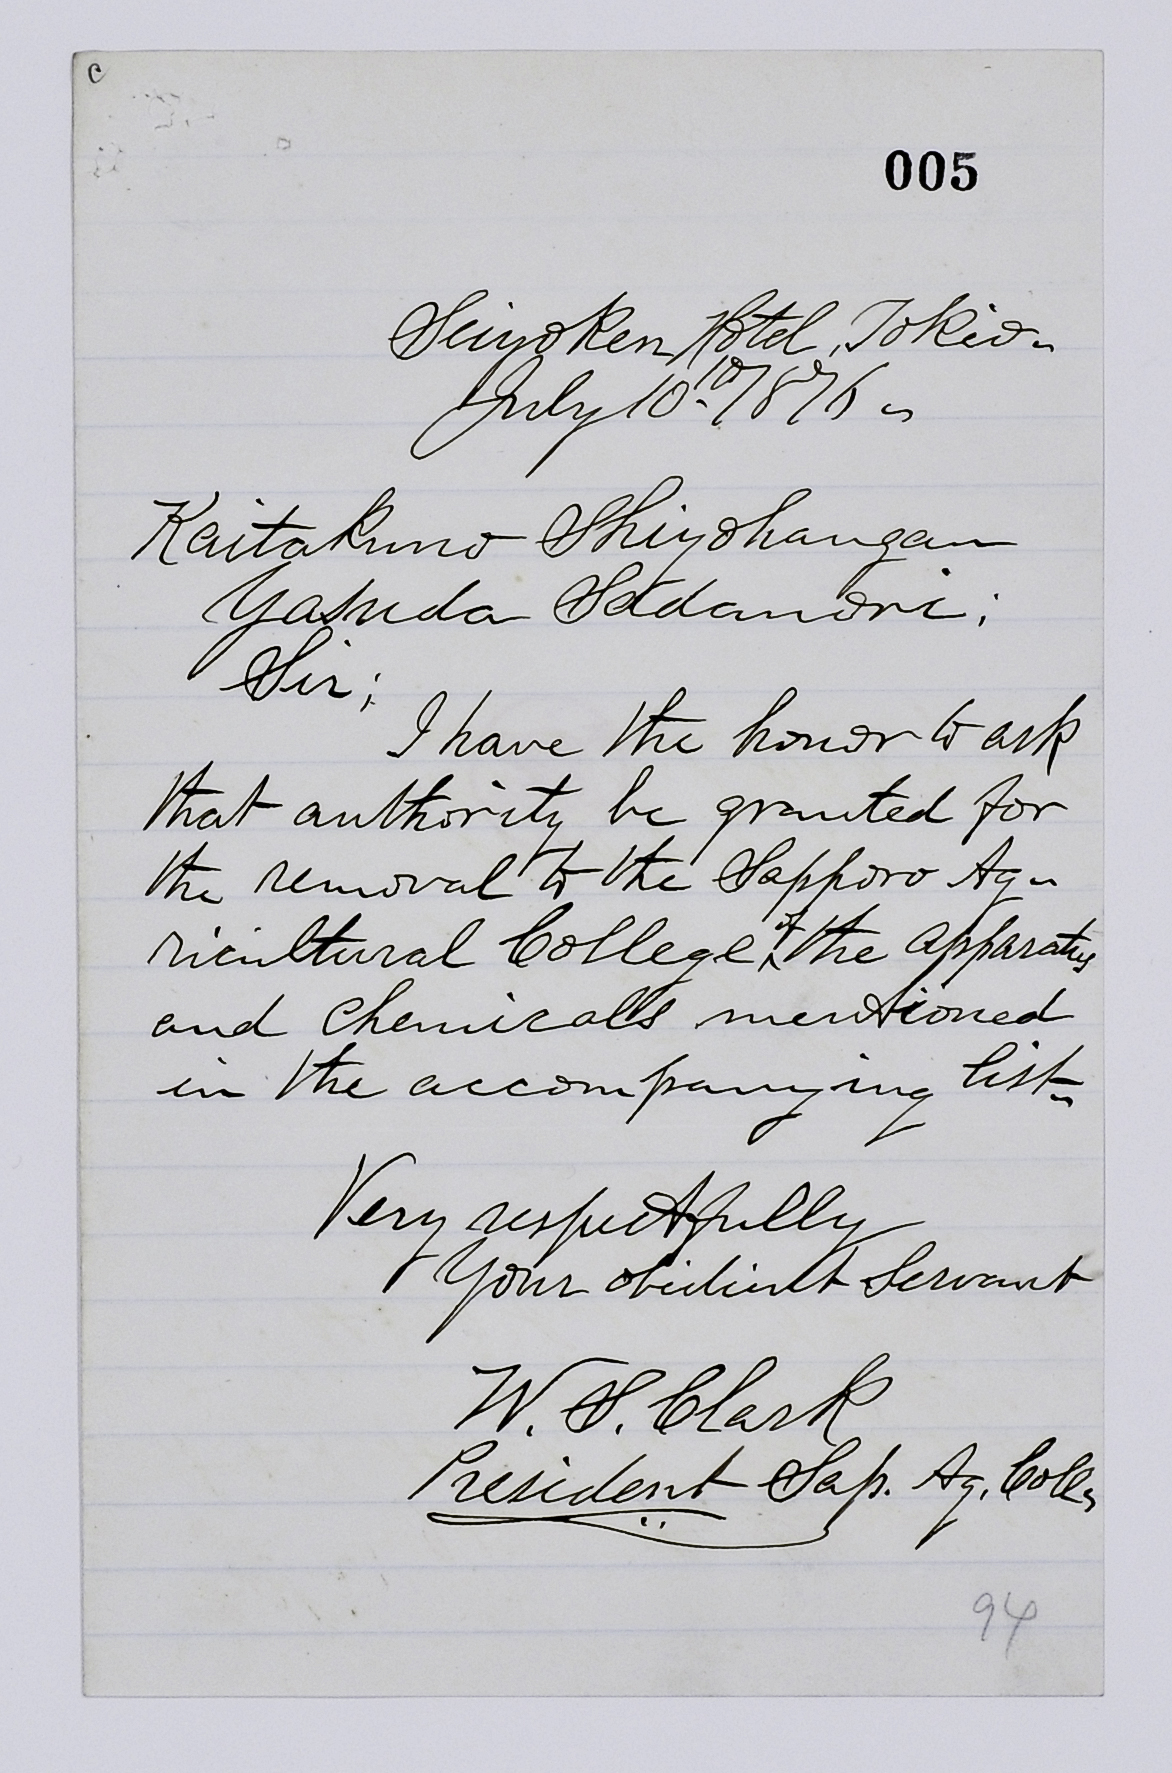 c
005
Seiyoken Hotel, Tokio.
July 10th 1876.
Kaitakuno Shiyohangan
Yasuda Sadanori;
Sir;
I have the honor to ask
that authority be granted for
the removal to the Sapporo Ag-
ricultural College, of the apparatus
and chemicals mentioned
in the accompanying list.
Very respectfully
Your obedient Servant
W. S. Clark
President Sap. Ag. Coll.
94